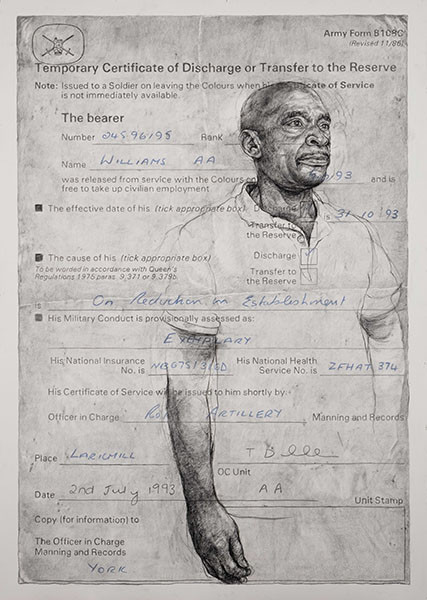 Army Form B108C
(Revised 11/86)
Temporary Certificate of Discharge or Transfer to the Reserve
Note: Issued to a Soldier on leaving the Colours when his Certificate of Service
is not immediately available.
The bearer
Number 24596195 Rank
Name WILLIAMS AA
was released from service with the Colours on /93 and is
free to take up civilian employment
The effective date of his (tick appropriate box) Discharge is 31-10-93
Transfer to
the Reserve
The cause of his (tick appropriate box) Discharge
To be worded in accordance with Queen's
Regulations 1975 paras. 9,371 or 9,379b.
Transfer to
the Reserve
is On Reduction in Establishment
His Military Conduct is provisionally assessed as:
EXEMPLARY
His National Insurance
No. is
His National Health
Service No. is ZFHAT 374
His Certificate of Service will be issued to him shortly by:-
Officer in Charge ARTILLERY Manning and Records
Place LARKHILL
OC Unit
Date 2nd July 1993 AA Unit Stamp
Copy (for information) to
The Officer in Charge
Manning and Records
YORK